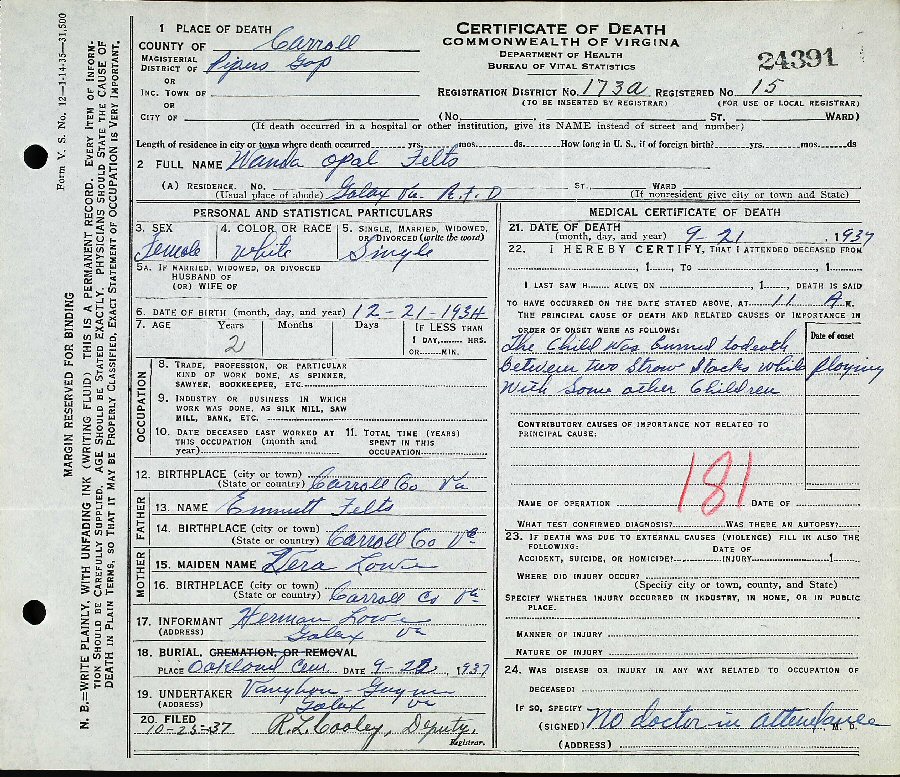 Form V. S. No. 12—1-14-35—31,500
MARGIN RESERVED FOR BINDING
N. B.—WRITE PLAINLY, WITH UNFADING INK (WRITING FLUID) THIS IS A PERMANENT RECORD. EVERY ITEM OF INFORM-
TION SHOULD BE CAREFULLY SUPPLIED. AGE SHOULD BE STATED EXACTLY. PHYSICIANS SHOULD STATE THE CAUSE OF
DEATH IN PLAIN TERMS, SO THAT IT MAY BE PROPERLY CLASSIFIED, EXACT STATEMENT OF OCCUPATION IS VERY IMPORTANT.
1 PLACE OF DEATH
COUNTY OF Carroll
MAGISTERIAL
DISTRICT OF Pipers Gap
OR
INC. TOWN OF
OR
CITY OF
CERTIFICATE OF DEATH
COMMONWEALTH OF VIRGINIA
DEPARTMENT OF HEALTH
BUREAU OF VITAL STATISTICS
24391
REGISTRATION DISTRICT NO. 173a REGISTERED NO. 15
(TO BE INSERTED BY REGISTRAR) (FOR USE OF LOCAL REGISTRAR)
(NO. ST. WARD)
(If death occurred in a hospital or other institution, give its NAME instead of street and number)
Length of residence in city or town where death occurred yrs. mos. ds. How long in U. S., if of foreign birth? yrs. mos. ds
2 FULL NAME Wanda Opal Felts
(A) RESIDENCE. NO. Galax Va. R.F.D ST., WARD
(Usual place of abode) (If nonresident give city or town and State)
PERSONAL AND STATISTICAL PARTICULARS
3. SEX Female
4. COLOR OR RACE White
5. SINGLE, MARRIED, WIDOWED, OR DIVORCED (write the word) Single
5A. IF MARRIED, WIDOWED, OR DIVORCED
HUSBAND OF
(OR) WIFE OF
6. DATE OF BIRTH (month, day, and year) 12-21-1934
7. AGE Years Months Days IF LESS THAN
2 1 DAY, HRS.
OR MIN.
OCCUPATION
8. TRADE, PROFESSION, OR PARTICULAR
KIND OF WORK DONE, AS SPINNER,
SAWYER, BOOKKEEPER, ETC.
9. INDUSTRY OR BUSINESS IN WHICH
WORK WAS DONE, AS SILK MILL, SAW
MILL, BANK, ETC.
10. DATE DECEASED LAST WORKED AT
THIS OCCUPATION (month and
year)
11. TOTAL TIME (YEARS)
SPENT IN THIS
OCCUPATION
12. BIRTHPLACE (city or town)
(State or country) Carroll Co Va
FATHER
13. NAME Emmutt Felts
14. BIRTHPLACE (city or town)
(State or country) Carroll Co Va
MOTHER
15. MAIDEN NAME Vera Lowe
16. BIRTHPLACE (city or town)
(State or country) Carroll Co Va
17. INFORMANT Herman Lowe
(ADDRESS) Galax Va
18. BURIAL, CREMATION, OR REMOVAL
PLACE Oakland Cem. DATE 9-22, 1937
19. UNDERTAKER Vaughan-Guynn
(ADDRESS) Galax Va
20. FILED 10-23-37 R.L. Cooley, Deputy
Registrar.
MEDICAL CERTIFICATE OF DEATH
21. DATE OF DEATH
(month, day, and year) 9-21, 1937
22. I HEREBY CERTIFY, THAT I ATTENDED DECEASED FROM
, 1 , TO , 1
I LAST SAW H ALIVE ON , 1 , DEATH IS SAID
TO HAVE OCCURRED ON THE DATE STATED ABOVE, AT 11 A M.
THE PRINCIPAL CAUSE OF DEATH AND RELATED CAUSES OF IMPORTANCE IN
ORDER OF ONSET WERE AS FOLLOWS:
Date of onset
The Child was burned to death
Between two Straw Stacks while ploying
With Some other Children
CONTRIBUTORY CAUSES OF IMPORTANCE NOT RELATED TO
PRINCIPAL CAUSE:
181
NAME OF OPERATION DATE OF
WHAT TEST CONFIRMED DIAGNOSIS? WAS THERE AN AUTOPSY?
23. IF DEATH WAS DUE TO EXTERNAL CAUSES (VIOLENCE) FILL IN ALSO THE
FOLLOWING: DATE OF
ACCIDENT, SUICIDE, OR HOMICIDE? INJURY 1
WHERE DID INJURY OCCUR?
(Specify city or town, county, and State)
SPECIFY WHETHER INJURY OCCURRED IN INDUSTRY, IN HOME, OR IN PUBLIC
PLACE.
MANNER OF INJURY
NATURE OF INJURY
24. WAS DISEASE OR INJURY IN ANY WAY RELATED TO OCCUPATION OF
DECEASED?
IF SO, SPECIFY
(SIGNED) No doctor in attendance, M. D.
(ADDRESS)